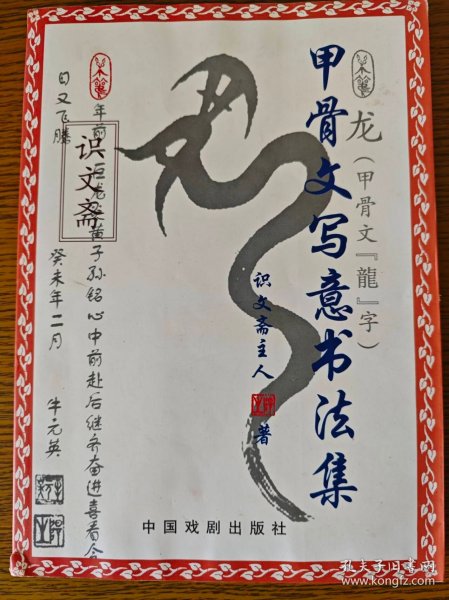 龙(甲骨文『龍』字)
甲骨文写意书法集
识文斋主人
著
年前巨龙
黄子孙铭心中前赴后继齐奋进喜看今
日又飞腾
癸未年二月
牛元英
识文斋
中国戏剧出版社
孔夫子旧书网
www.kongfz.com